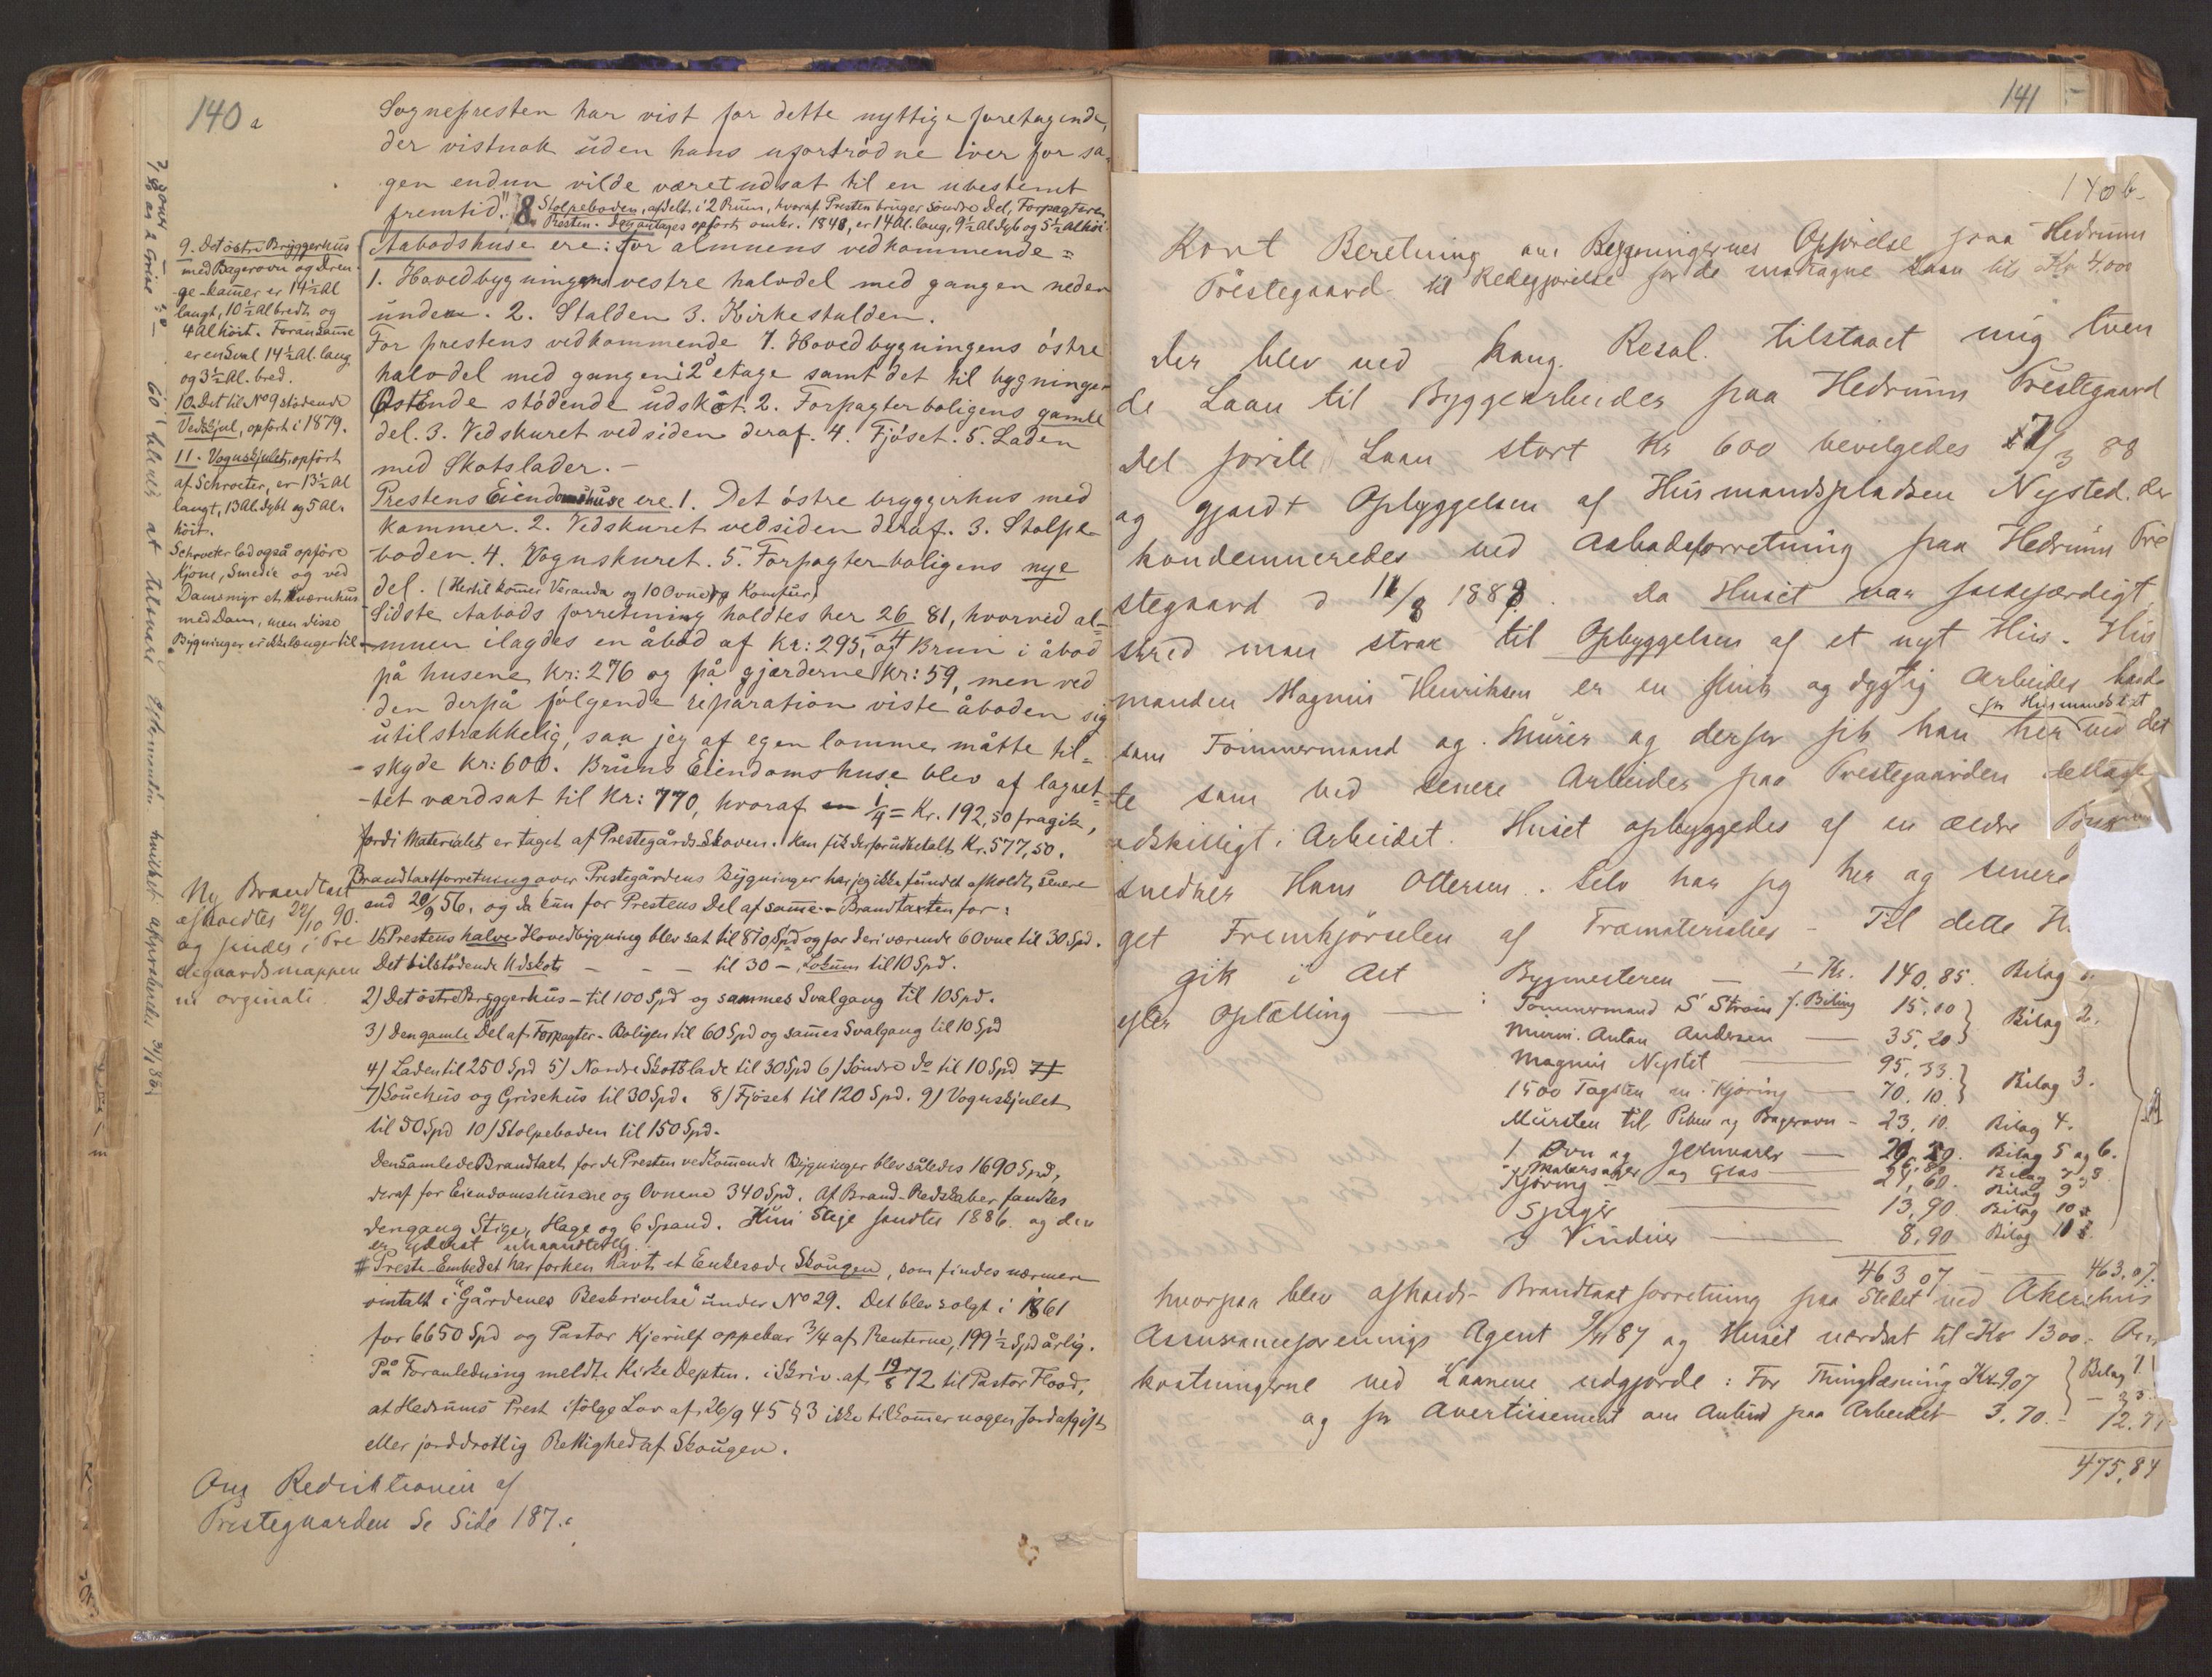 140 a
Sognepresten har vist for dette nyttige foretagende,
der vistnok uden hans ufortrødne iver for sa-
gen endnu vilde været udsat til en ubestemt
fremtid." 8 Stolpeboden, afdelt i 2 Rum, hvoraf Presten bruger Søndre Del, Forpagteren
Resten. Den antages opført omkr. 1840, er 14 Al. lang, 9½ Al dyb og 5½ Al höi.
Aabodshuse ere: for almuens vedkommende =
1. Hovedbygningens vestre halvdel med gangen neden
under. 2. Stalden 3. Kirkestalden.
For prestens vedkommende 1. Hovedbygningens östre
halvdel med gangen i 2den etage samt det til bygningens
Östende stödende udskot. 2. Forpagterboligens gamle
del. 3. Vedskuret ved siden deraf. 4. Fjöset. 5. Laden
med Skotslader. –
Prestens Eiendomshuse ere 1. Det östre bryggerhus med
kammer. 2. Vedskuret ved siden deraf. 3. Stolpe-
boden. 4. Vognskuret. 5. Forpagterboligens nye
del. (Hertil kommer Veranda og 10 Ovne og Komfur)
Sidste Aabods forretning holdtes her 26/4 81, hvorved al-
muen ilagdes en åbod af kr: 295, og Brun i åbod
på husene kr: 276 og på gjærderne kr: 59, men ved
den derpå følgende reparation viste åboden sig
utilstrækkelig, saa jeg af egen lomme måtte til-
skyde kr: 600. Bruns Eiendomshuse blev af lagret-
tet værdsat til Kr: 770, hvoraf ¼ = Kr. 192,50 fragik,
fordi Materialet er taget af Prestegårds-Skoven. Han fik derfor udbetalt Kr. 577,50.
Brandtaxtforretning over Prestegårdens Bygninger har jeg ikke fundet afholdt senere
end 20/9 56, og da kun for Prestens Del af samme. Brandtaxten for:
1) Prestens halve Hovedbygning blev sat til 810 Spd og for deri værende 6 Ovne til 30 Spd.
Det tilstödende Udskot – – – til 30 – Lokum til 10 Spd.
2) Det östre Bryggerhus – til 100 Spd og sammes Svalgang til 10 Spd.
3) Den gamle Del af Forpagter-Boligen til 60 Spd og sammes Svalgang til 10 Spd
4) Laden til 250 Spd 5) Nordre Skotslade til 30 Spd 6) Söndre do til 10 Spd 7)
7) Souehus og Grisehus til 30 Spd. 8) Fjöset til 120 Spd. 9) Vognskjulet
til 50 Spd 10) Stolpeboden til 150 Spd.
Den samlede Brandtaxt for de Presten vedkommende Bygninger blev således 1690 Spd,
deraf for Eiendomshusene og Ovnene 340 Spd. Af Brand-Redskaber fandtes
dengang Stiger, Hage og 6 Spand. Kun Stige fandtes 1886. og den
er yderst
# Preste-Embedet har forhen havt et Enkesæde Skougen, som findes nærmere
omtalt i "Gårdenes Beskrivelse" under No 29. Det blev solgt i 1861
for 6650 Spd og Pastor Kjerulf oppebar ¾ af Renterne, 199½ Spd årlig.
På Foranledning meldte Kirke Depten. i Skriv. af 19/8 72 til Pastor Flood,
at Hedrums Prest ifölge Lov af 26/9 45 § 3 ikke tilkommer nogen Jordafgift
eller jorddrottlig Rettighed af Skougen.
Om Reduktionen af
Prestegaarden Se Side 187.
9. Det östre Bryggerhus
med Bagerovn og Dren-
ge-kammer er 14½ Al
langt, 10½ Al bredt og
4 Al höit. Foran samme
er en Sval 14½ Al. lang
og 3½ Al. bred.
10. Det til No 9 stödende
Vedskjul, opfört i 1879.
11. Vognskjulet, opfört
af Schroeter, er 13½ Al
langt, 13 Al dybt og 5 Al.
höit.
Schroeter lod også opföre
Kjone, Smedie og ved
Damsmyr et Kværnhus
med Dam, men disse
Bygninger er ikke længer til.
Ny Brandtaxt
afholdtes 22/10 90.
og findes i Pre
stegaardsmappen
in orginali.
141
140 b.
Kort Beretning om Bygningernes Opførelse paa Hedrum
Prestegaard til Redegjørelse for de modtagne Laan til Kr 4,000
Der blev ved kong. Resol. tilstaaet mig tven
de Laan til Byggearbeider paa Hedrum Prestegaard
Det förste Laan stort Kr 600 bevilgedes 17/3 88
og gjaldt Opbyggelsen af Husmandspladsen Nysted. der
kondemneredes ved Aabodsforretning paa Hedrum Pre
stegaard d 11/8 1888. Da Huset var faldefærdigt
skred man strax til Opbyggelsen af et nyt Hus. Hus
manden Magnus Henriksen er en flink og dygtig Arbeider baade
for Husmandstet
som Tømmermand og Murer og derfor fik han her ved det
te som ved senere Arbeider paa Prestegaarden deltage
adskilligt i Arbeidet. Huset opbyggedes af en ældre
snedker Hans Ottersen. Selv har jeg her og senere
get Fremkjørselen af Træmaterialier – Til dette H
gik i Alt Bygmesteren – Kr. 140,85. Bilag
efter Optælling — Tömmermand S Strøm f. Biling 15,00
Murm. Anton Andersen — 35,20 Bilag 2.
Magnus Nystet — 95,33.
1500 Tagsten m. Kjöring — 70,10. Bilag 3.
Mursten til Piben og Bagerovn – 23,10. Bilag 4.
1 Ovn og Jernvarer — 26,20. Bilag 5 og 6.
Malersager og Glas — Bilag 7 og 8
Kjøring — 24,60. Bilag 9
Spiger — 13,90. Bilag 10
3 Vinduer — 8,90 Bilag 11
463 07 — 463,07.
hvorpaa blev afholdt Brandtaxtforretning paa Stedet ved Akershus
Assuranceforenings Agent 9/11 87 og Huset værdsat til Kr 1300.
kostningerne ved Laanene udgjorde: For Thinglæsning Kr. 9.07 Bilag 1
og for Avertissement om Anbud paa Arbeidet 3.70. – 12.77
475,84